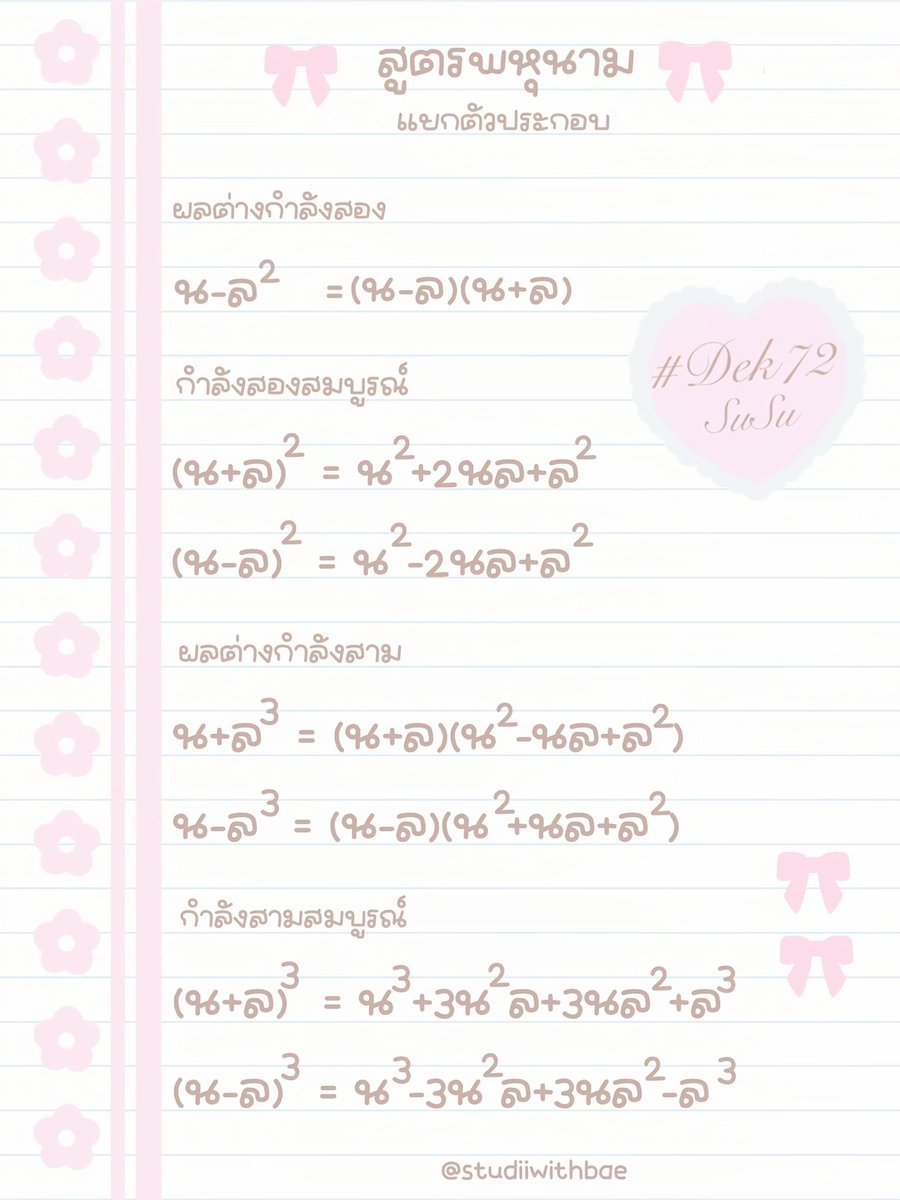 สูตรพหุนาม
แยกตัวประกอบ
ผลต่างกำลังสอง
น-ล² =(น-ล)(น+ล)
#Dek72
SuSu
กำลังสองสมบูรณ์
(น+ล)² = น²+2นล+ล²
(น-ล)² = น²-2นล+ล²
ผลต่างกำลังสาม
น+ล³ = (น+ล)(น²-นล+ล²)
น-ล³ = (น-ล)(น²+นล+ล²)
กำลังสามสมบูรณ์
(น+ล)³ = น³+3น²ล+3นล²+ล³
(น-ล)³ = น³-3น²ล+3นล²-ล³
@studiiwithbae